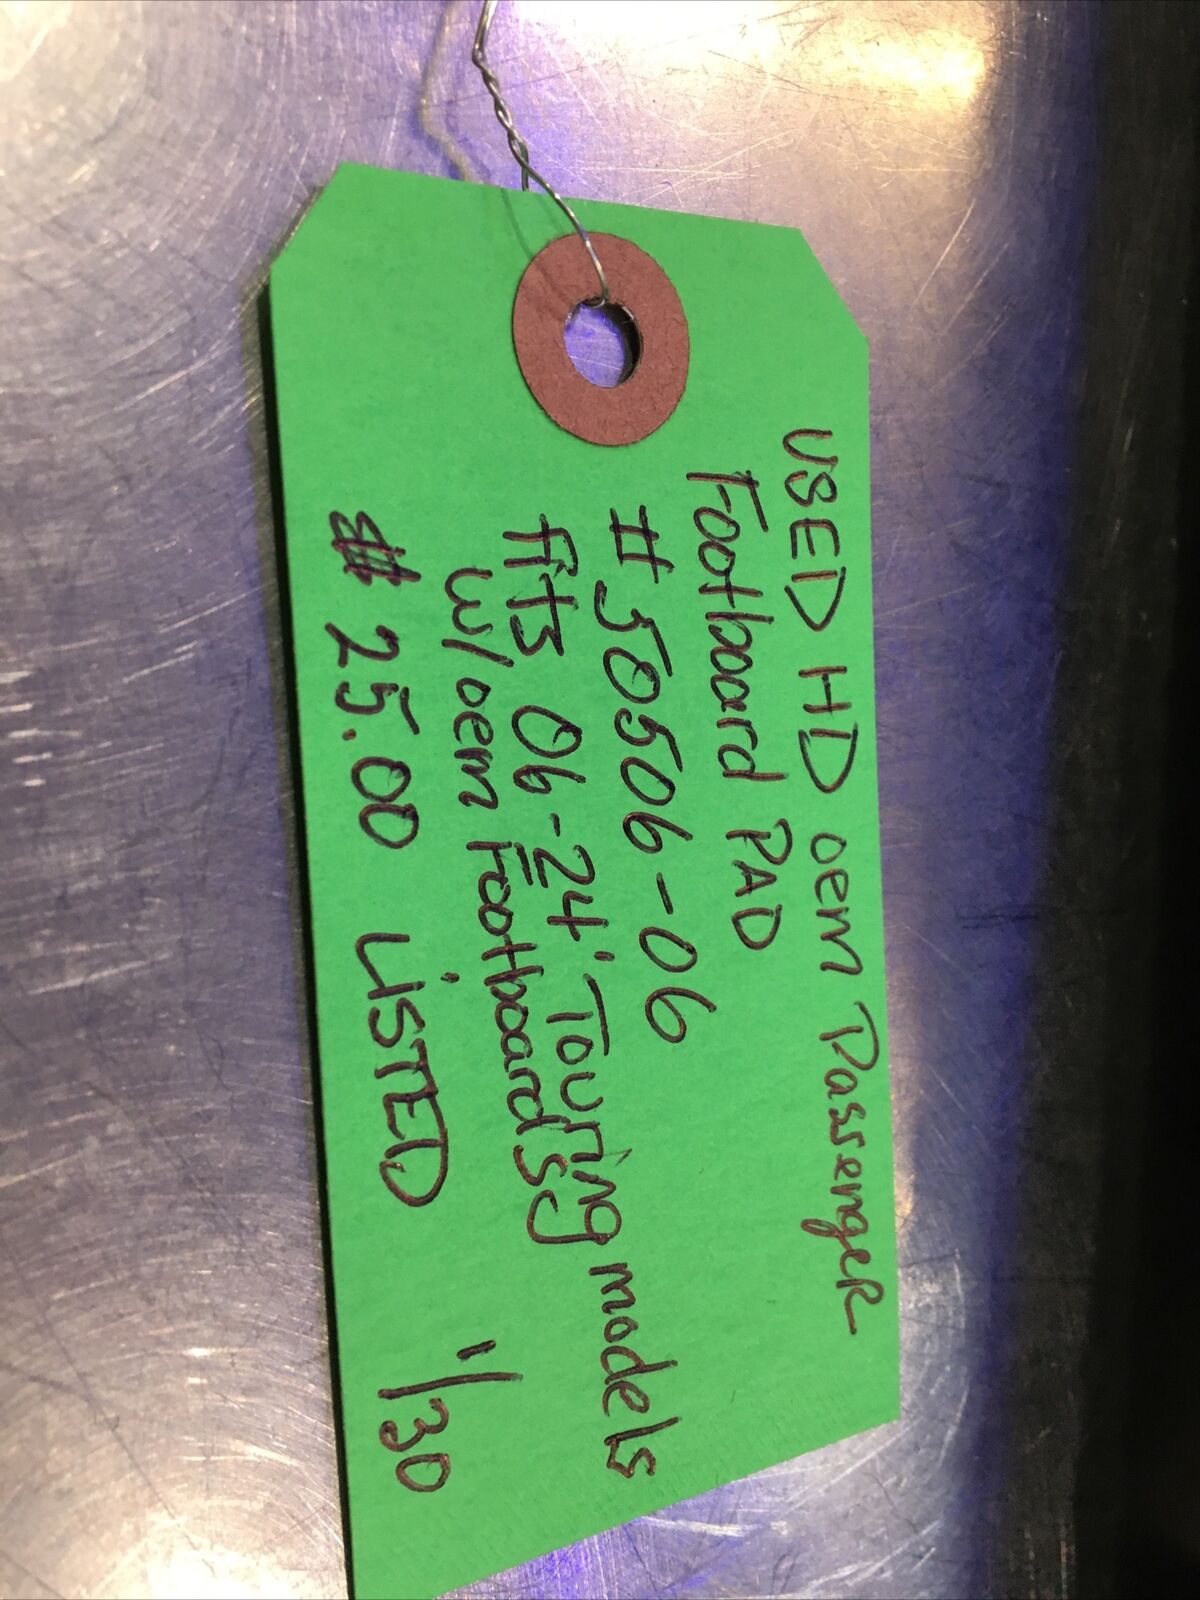 USED HD oem PassengeR
Footboard PAD
# 50506-06
fits 06-24' Touring models
w/oem Footboards
$ 25.00 LiSTED 1/30